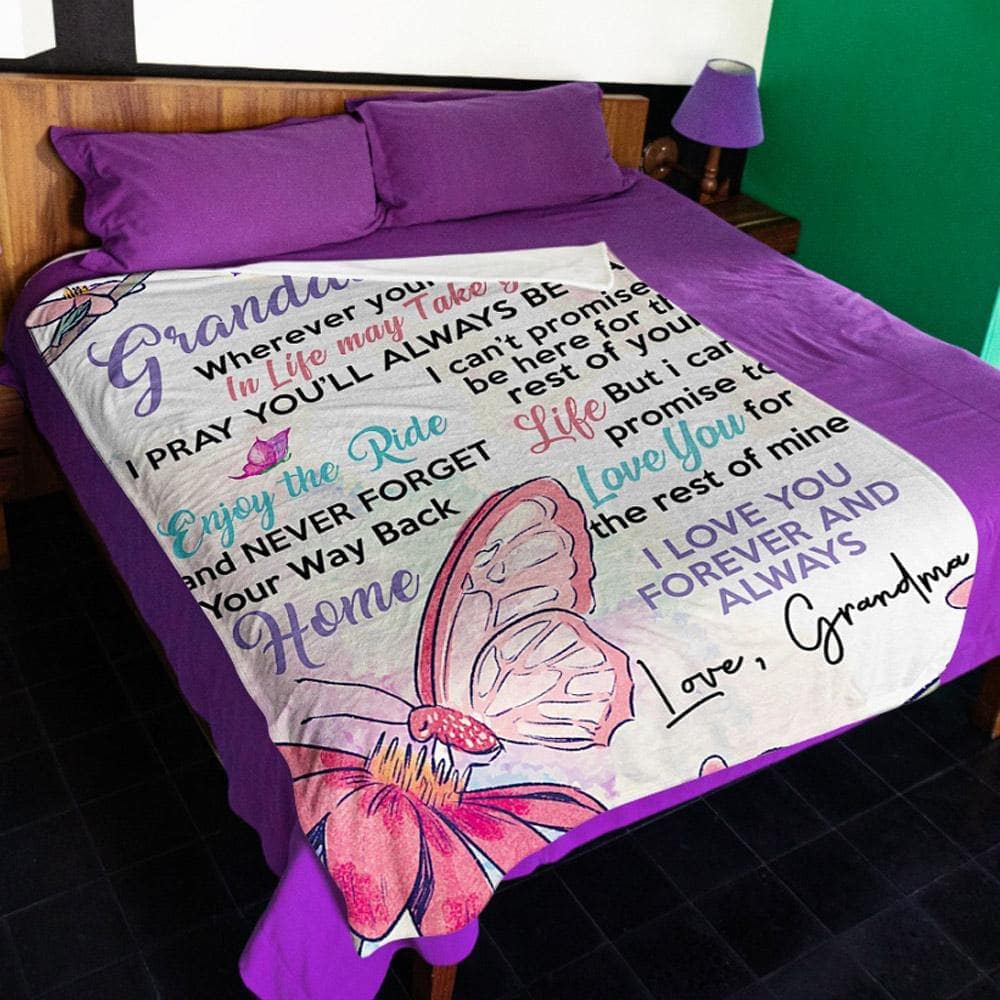 Wherever
In Life may Take
I PRAY YOU'LL ALWAYS BE
Enjoy the Ride
and NEVER FORGET
Your Way Back
Home
I can't promise
be here for
rest of
Life But i can
promise to
Love You for
the rest of mine
I LOVE YOU
FOREVER AND
ALWAYS
Love, Grandma